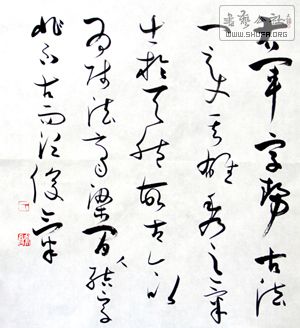 書藝公社
WWW.SHUFA.ORG
右軍字勢古法
一變其雄秀之氣
出於天然故古今以
為師法齊梁間人結字
非不古而乏俊氣